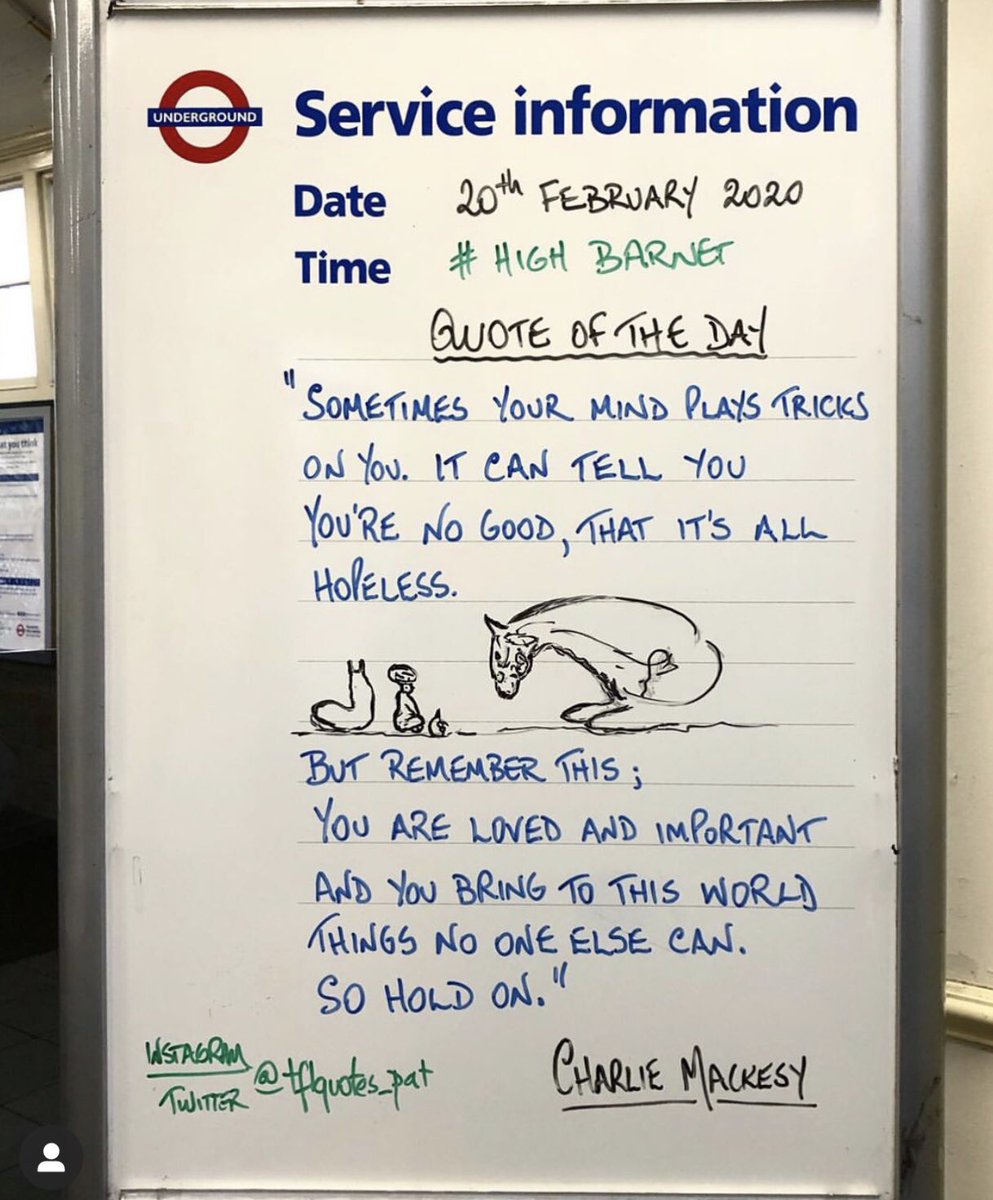 UNDERGROUND
Service information
Date 20th FEBRUARY 2020
Time # HIGH BARNET
QUOTE OF THE DAY
"SOMETIMES YOUR MIND PLAYS TRICKS
ON YOU. IT CAN TELL YOU
YOU'RE NO GOOD, THAT IT'S ALL
HOPELESS.
BUT REMEMBER THIS;
YOU ARE LOVED AND IMPORTANT
AND YOU BRING TO THIS WORLD
THINGS NO ONE ELSE CAN.
SO HOLD ON."
INSTAGRAM
TWITTER
@tflquotes_pat
CHARLIE MACKESY